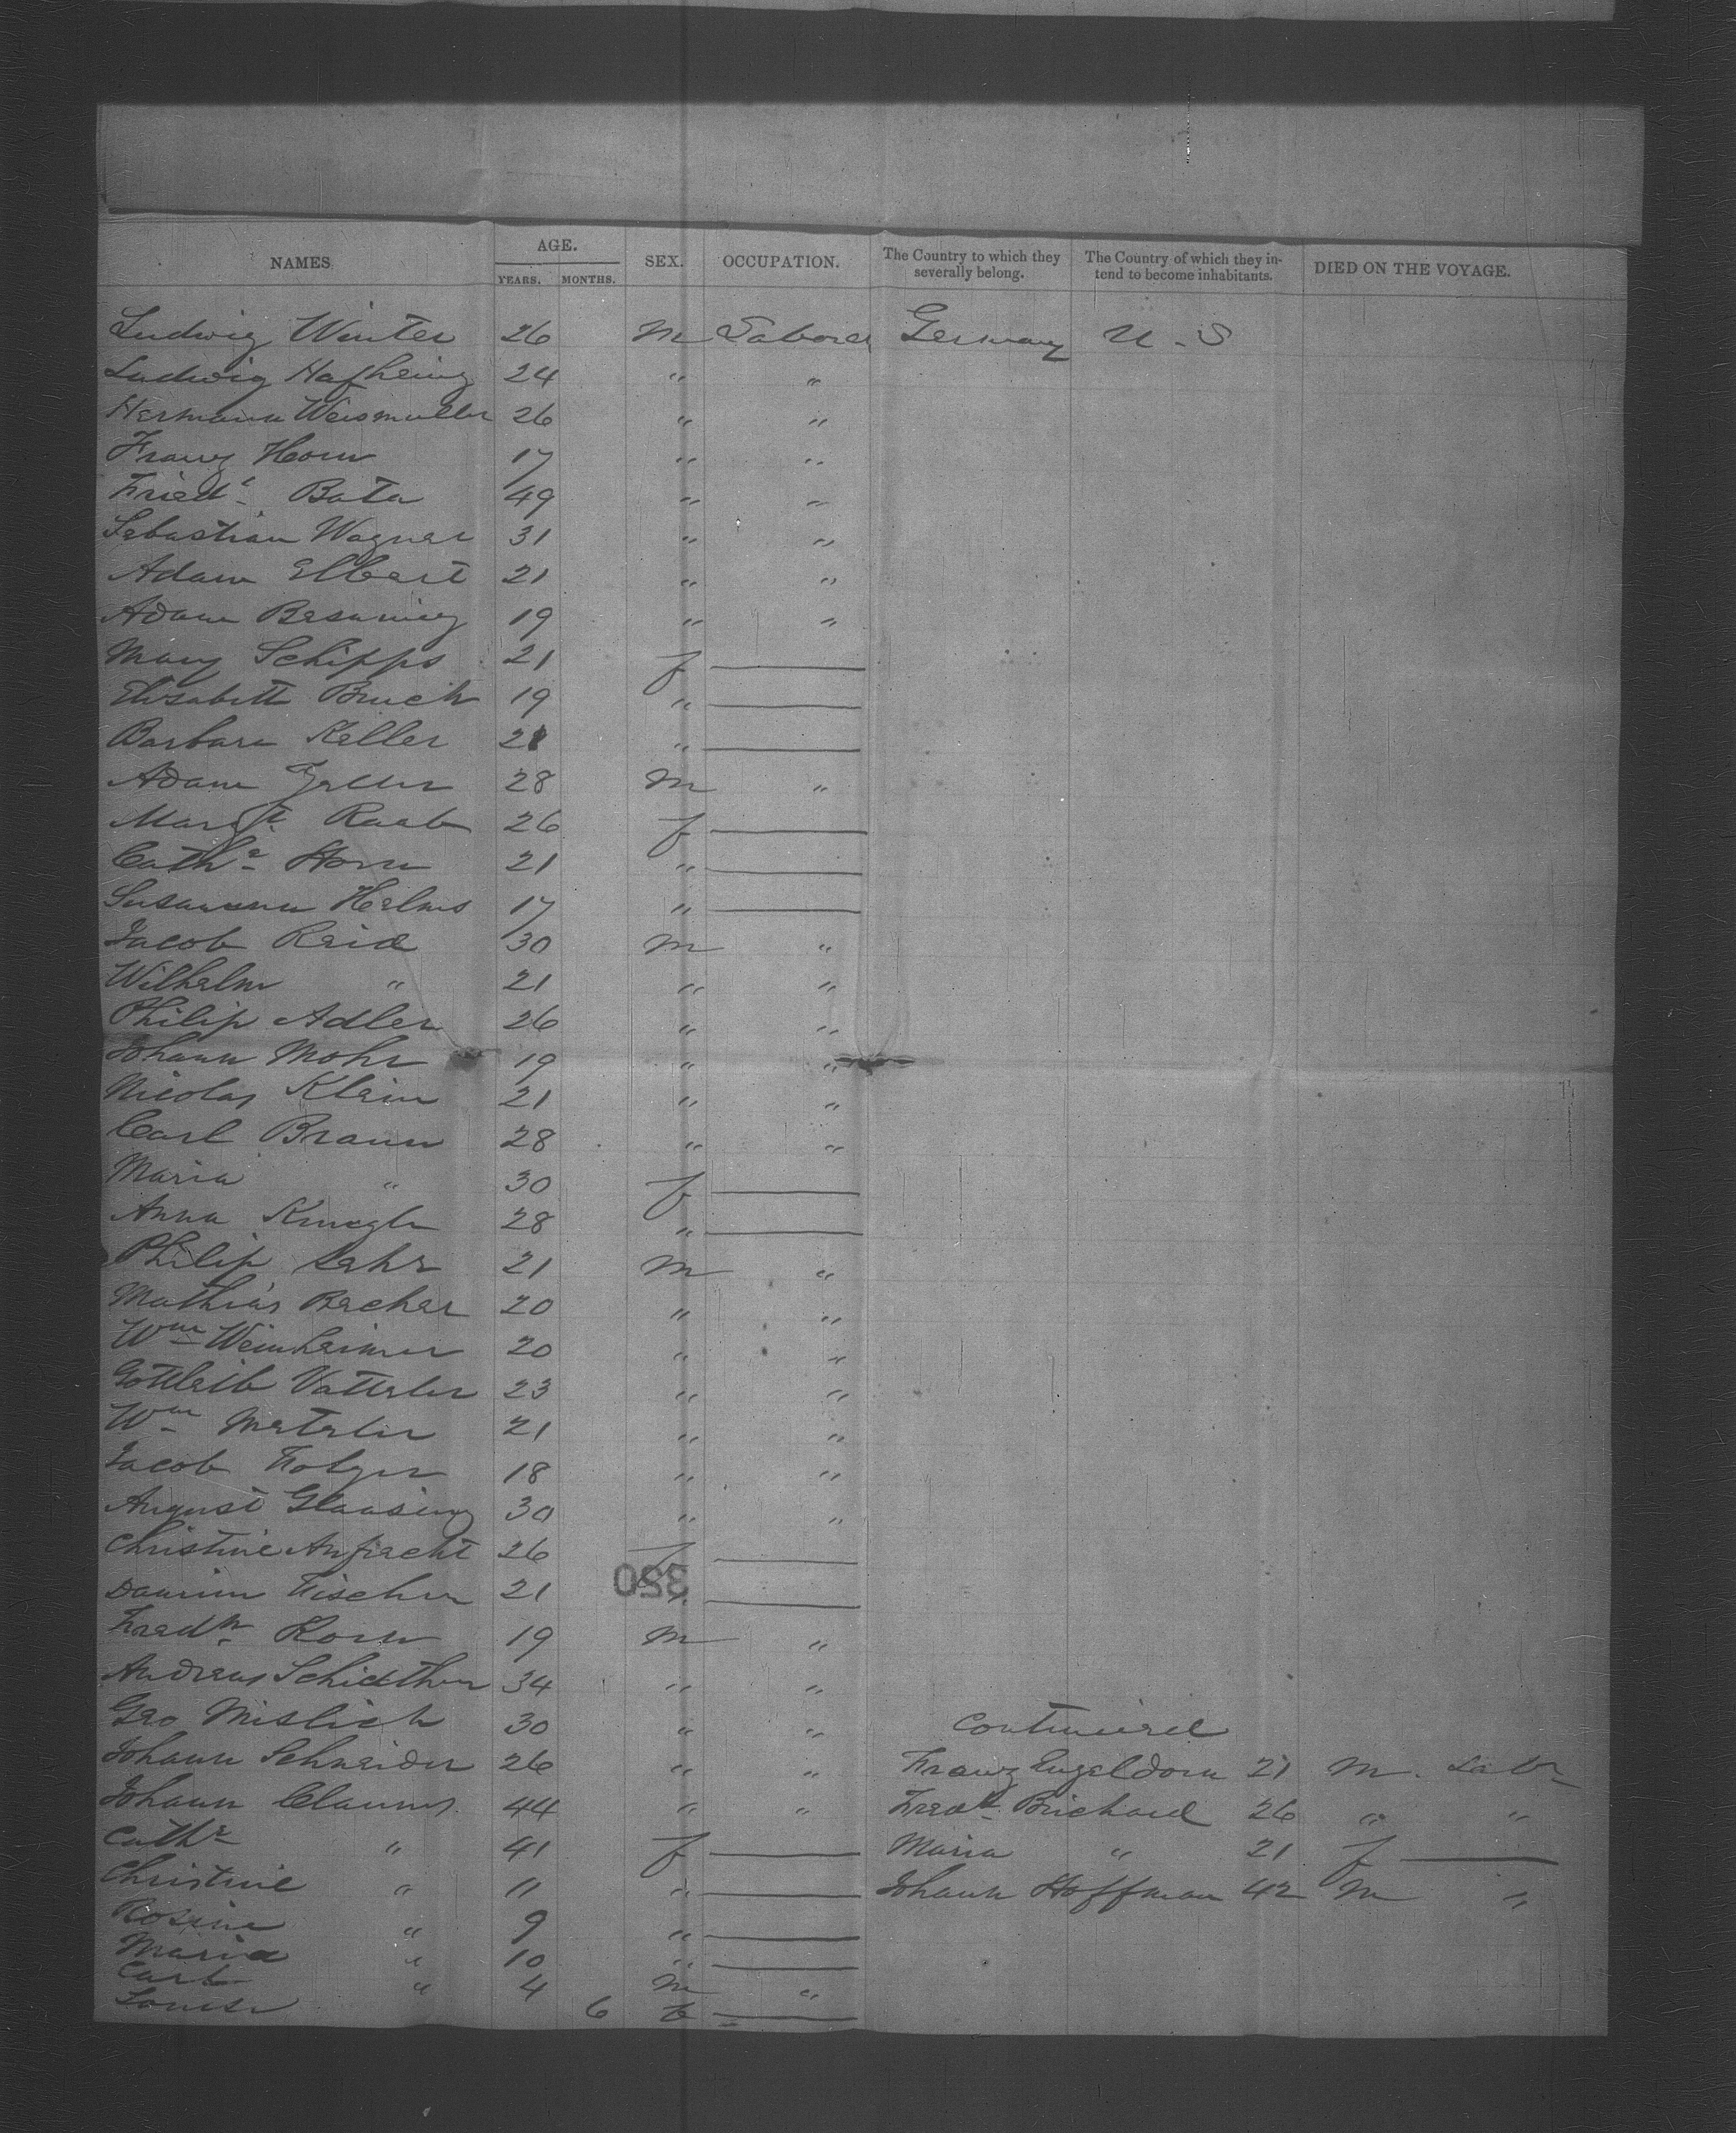 NAMES. AGE. SEX. OCCUPATION. The Country to which they severally belong. The Country of which they intend to become inhabitants. DIED ON THE VOYAGE.
YEARS. MONTHS.
Ludwig Winter 26 m Laborer Germany U-S
Ludwig 24 " "
Hermann Weismuller 26 " "
Franz Horn 17 " "
Friedk Bata 49 " "
Sebastian Wagner 31 " "
Adam Elbert 21 " "
Adam 19 " "
Mary Schipps 21 f —
Elisabeth Bruch 19 " —
Barbara Keller 21 " —
Adam 28 m "
Margt Raab 26 f —
Cathe Horn 21 " —
Susanna Helms 17 " —
Jacob Reid 30 m "
Wilhelm " 21 " "
Philip Adler 26 " "
Johann Mohr 19 " "
Nicolas Klein 21 " "
Carl Braun 28 " "
Maria " 30 f —
Anna 28 " —
Philip 21 m "
Mathias Becher 20 " "
Wm Weinheimer 20 " "
Gottleib Vatterler 23 " "
Wm 21 " "
Jacob 18 " "
August Glaasing 30 " "
Christine 26 f —
Fischer 21 " —
320
Fredk Korn 19 m "
Andreas 34 " "
Geo Mislich 30 " "
Johann Schneider 26 " "
Johann 44 " "
Cathe " 41 f —
Christine " 11 " —
Rosine " 9 " —
Maria " 10 " —
Carl " 4 m "
Louise 6 f —
Continued
Franz Engeldorn 21 m. Labr
Fredk Brichard 26 " "
Maria " 21 f —
Johann Hoffman 42 m "